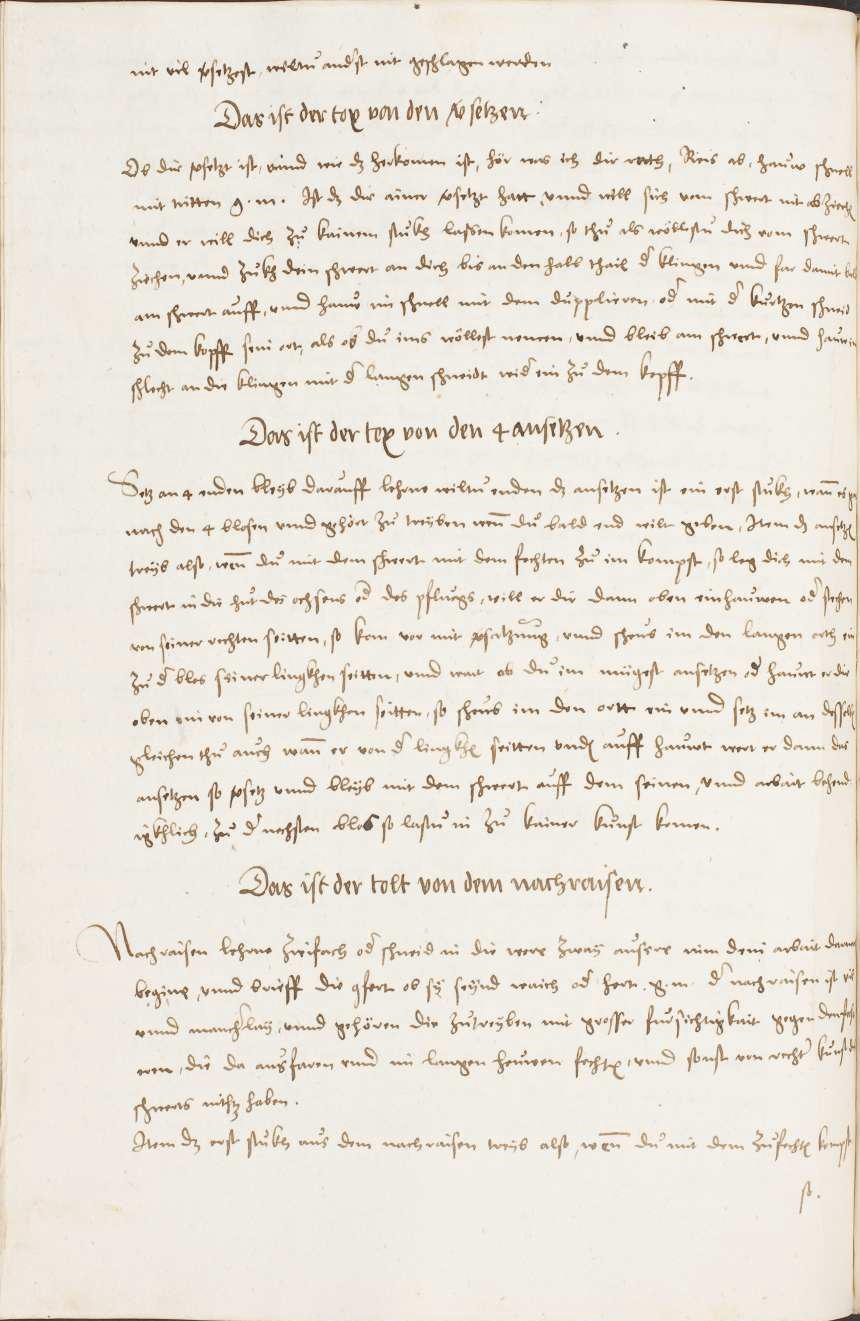 nit vil vsetzest, wiltu anderst nit geschlagen werden
Das ist der tex von den vsetzen
Ob dir vsetzt ist, vnnd wie dz herkomen ist, hör was ich dir rath, Reis ab, hauw schnell
mit tritten g. m. Ist dz dir ainer vsetzt hatt, vnnd will sich vom schwert nit ab
vnnd er will dich zu kainem stukh lassen komen, so thu als wöllestu dich vom schwert
ziechen, vnnd zukh dein schwert an dich bis an den halb thail d klingen vnd far damit
am schwert auff, vnnd hauw im schnell mit dem dupplieren od mit d kurtzen schneid
zu dem kopff sein ort, als ob du ims wöllest nemen, vnnd bleib am schwert, vnnd hauw im
schlecht an die klingen mit d langen schneidt wid ein zu dem kopff.
Das ist der tex von den 4 ansetzen.
Setz an 4 enden bleyb darauff lehrne wiltu enden dz ansetzen ist ein erst stukh, wan
nach den 4 blosen vnnd gehört zu treyben wen du bald end wilt geben, Item dz ansetz
treyb also, wen du mit dem schwert mit dem fechten zu im kompst, so leg dich mit dem
schwert in die hut des ochsens od des pfluegs, will er dir dann oben einhauwen od stechen
von seiner rechten seitten, so kom vor mit vsatzung, vnnd scheus im den langen orth ein
zu d blos seiner lingkhen seitten, vnnd wart ob du im mügest ansetzen od hauwt er dir
oben ein von seiner lingkhen seitten, so scheus im den ortt ein vnnd setz im an desselb
gleichen thu auch wan er von d lingkh seitten vnd auff hauwt wert er dann das
ansetzen so vsetz vnnd bleyb mit dem schwert auff dem seinen, vnnd arbait behend
igkhlich, zu d nechsten blos so lastu in zu kainer kunst komen.
Das ist der tolt von dem nachraisen.
Nachraisen lehrne zwifach od schneid in die were zway aussre nim dein arbait
begine, vnnd brieff die gfert ob sy seynd waich od hert. g. m. d nachraisen ist vil
vnnd mancherlay, vnnd gehören die zutreyben mit grosser fursichtigkait gegen
eren, die da ausfaren vnnd in langen heuwen fecht, vnnd sonst von recht kunst
schwerts nichtz haben.
Item dz erst stukh aus dem nachraisen treyb also, wen du mit dem zufecht kompst
so.